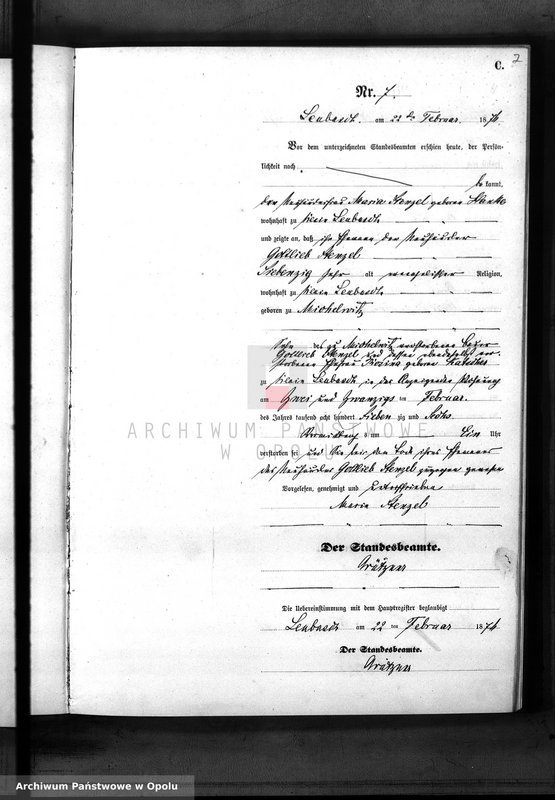 C. 2
Nr. 7.
Leubusch. am 22 ten Februar 1876.
Vor dem unterzeichneten Standesbeamten erschien heute, der Persön-
lichkeit nach
be kannt,
die Maria Stenzel geborne
wohnhaft zu Klein Leubusch
und zeigte an, daß ihr Ehemann der
Gottlieb Stenzel
Siebenzig Jahr alt evangelischer Religion,
wohnhaft zu Klein Leubusch
geboren zu Michelwitz
Sohn des zu Michelwitz verstorbenen
Gottlieb Stenzel und dessen ebendaselbst ver-
storbenen Ehefrau Rosina geborne
zu Klein Leubusch in der Wohnung
am Zwei und Zwanzigs ten Februar
des Jahres tausend acht hundert Sieben zig und Sechs
Vormittag s um Ein Uhr
verstorben sei und sie bei dem Tode ihres Ehemannes
des Gottlieb Stenzel zugegen gewesen
Vorgelesen, genehmigt und unterschrieben
Maria Stenzel
Der Standesbeamte.
Die Uebereinstimmung mit dem Hauptregister beglaubigt
Leubusch am 22 ten Februar 1876
Der Standesbeamte.
ARCHIWUM PAŃSTWOWE
W OPOLU
Archiwum Państwowe w Opolu